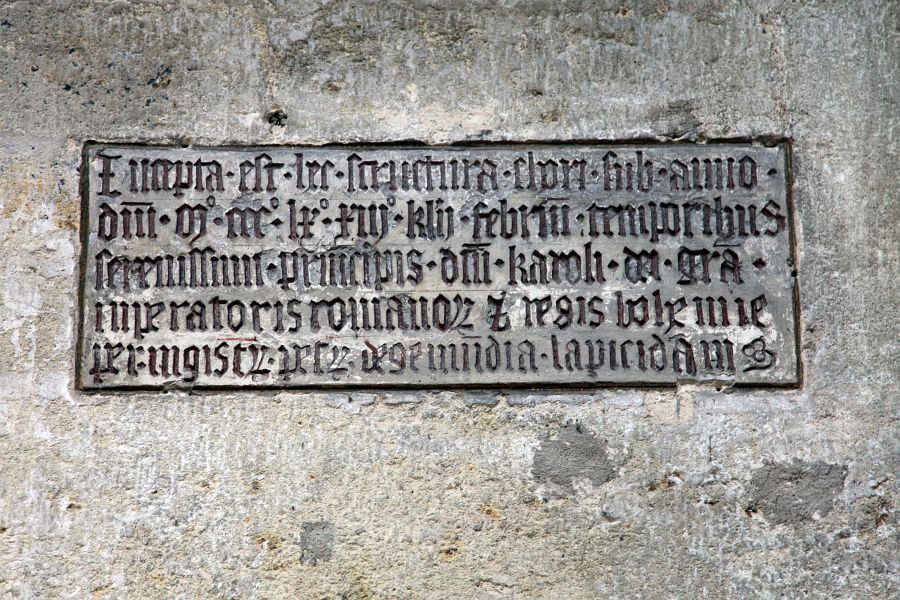 Incepta · est · hec · structura · chori · sub · anno ·
dnī · mͦ · cccͦ · lxͦ · xiijͦ · klīs febrīī · temporibus
serenissimi · principis · dnī · karoli · di · grā ·
inperatoris romanoꝝ ⁊ regis bohemie
per · mgistꝝ · petꝝ · de gemūdia · lapicidam